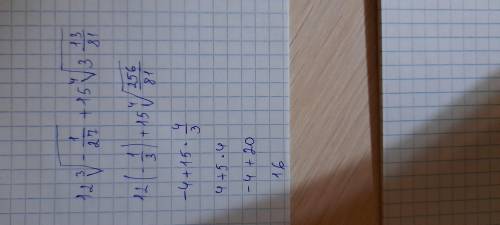 12∛(-1/27) + 15∜(3 13/81)
12(-1/3) + 15∜(256/81)
-4+15·4/3
4+5·4
-4+20
16